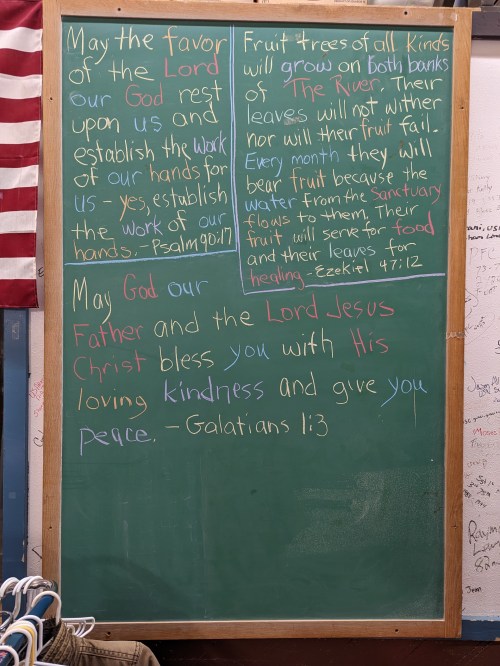 May the favor
of the Lord
our God rest
upon us and
establish the work
of our hands for
us - yes, establish
the work of our
hands. - Psalm 90:17
Fruit trees of all kinds
will grow on both banks
of The River. Their
leaves will not wither
nor will their fruit fail.
Every month they will
bear fruit because the
water from the Sanctuary
flows to them. Their
fruit will serve for food
and their leaves for
healing - Ezekiel 47:12
May God our
Father and the Lord Jesus
Christ bless you with His
loving kindness and give you
peace. - Galatians 1:3